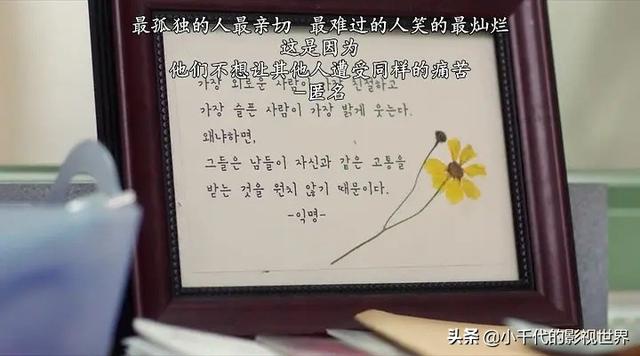 最孤独的人最亲切 最难过的人笑的最灿烂
这是因为
他们不想让其他人遭受同样的痛苦
-匿名
가장 외로운 사람이 가장 친절하고
가장 슬픈 사람이 가장 밝게 웃는다.
왜냐하면,
그들은 남들이 자신과 같은 고통을
받는 것을 원치 않기 때문이다.
-익명-
头条 @小千代的影视世界